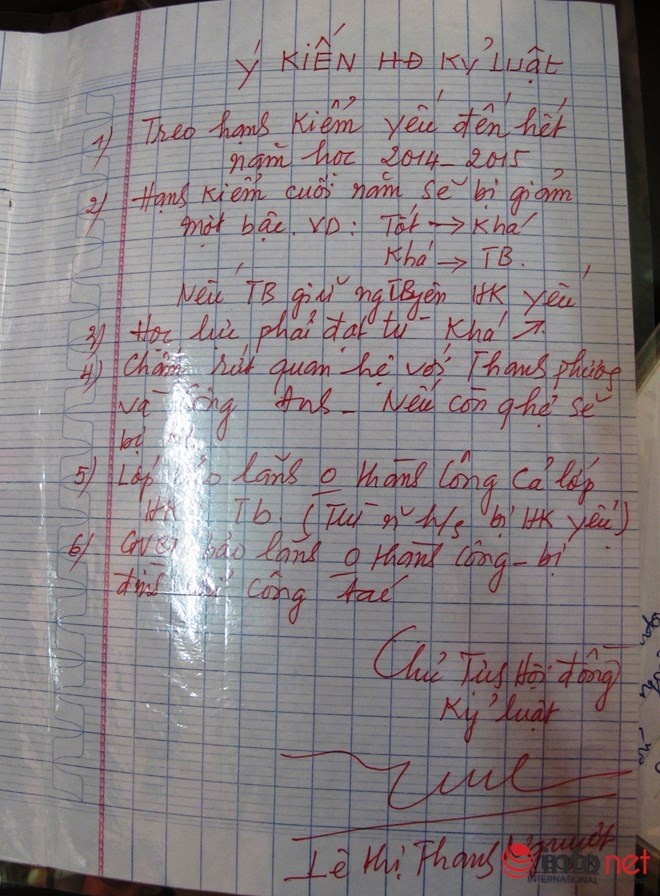 Ý KIẾN HĐ KỶ LUẬT
1) Treo hạnh kiểm yếu đến hết
năm học 2014-2015
2) Hạnh kiểm cuối năm sẽ bị giảm
một bậc. VD: Tốt → Khá
Khá → TB.
Nếu TB giữ ngTByên HK yếu
3) Học lực phải đạt từ Khá ↗.
4) Chấm rứt quan hệ với Thanh phương
và Anh - Nếu còn ghệ sẽ
bị
5) Lớp lãnh 0 thành công cả lớp
HK Tb. (Trừ h/s bị HK yếu)
6) bảo lãnh 0 thành công - bị
công tác
Chủ Tịch Hội đồng
Kỷ luật
Lê Thị Thanh
net
INTERNATIONAL